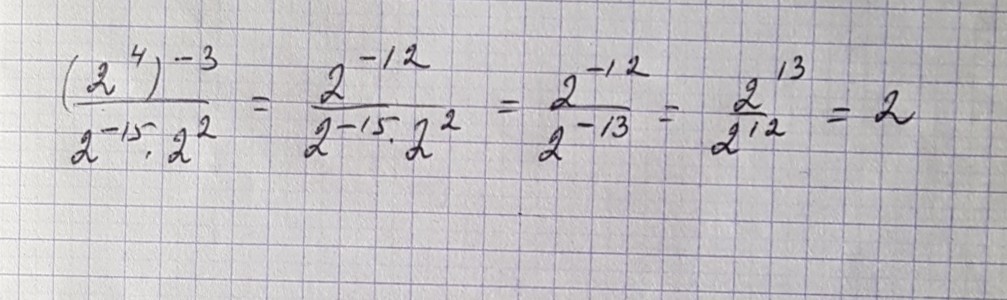 (2^4)^-3 / 2^-15 · 2^2 = 2^-12 / 2^-15 · 2^2 = 2^-12 / 2^-13 = 2^13 / 2^12 = 2